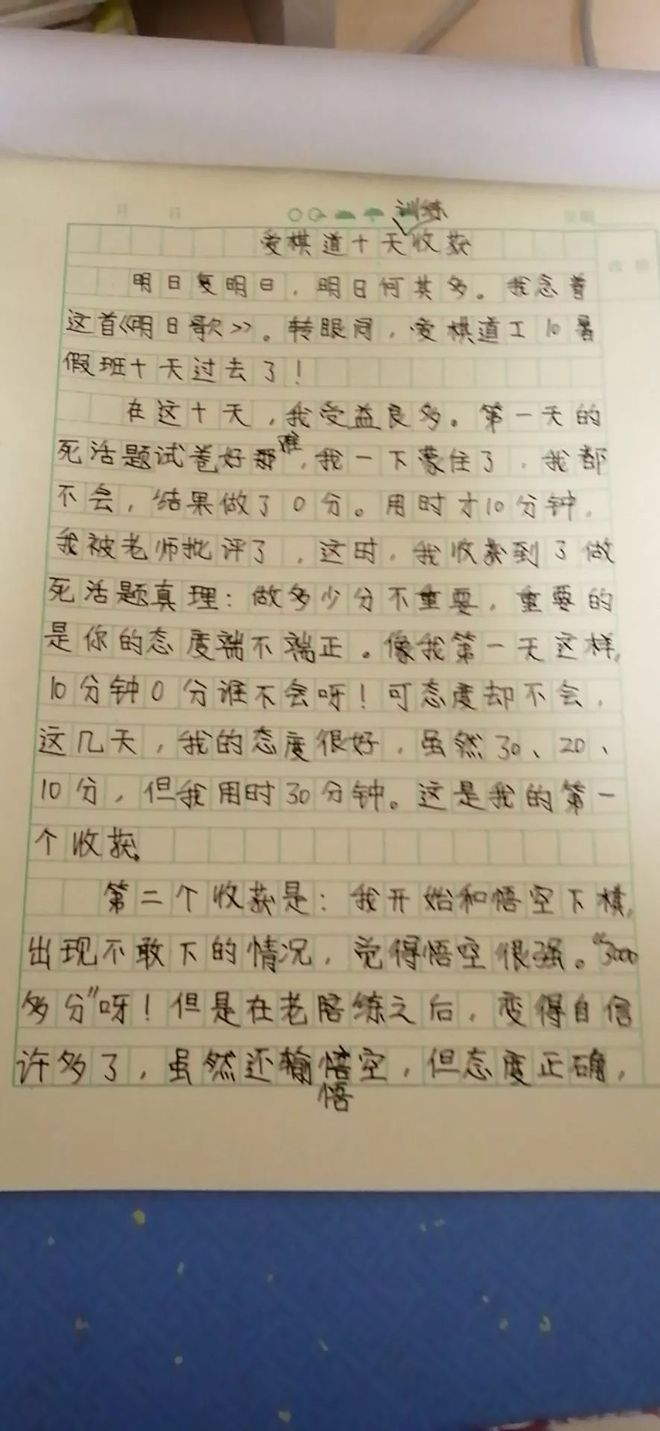 爱棋道十天训练收获
明日复明日，明日何其多。我念着
这首《明日歌》。转眼间，爱棋道工10暑
假班十天过去了！
在这十天，我受益良多。第一天的
死活题试卷好难，我一下蒙住了，我都
不会，结果做了0分。用时才10分钟，
我被老师批评了，这时，我收获到了做
死活题真理：做多少分不重要，重要的
是你的态度端不端正。像我第一天这样，
10分钟0分谁不会呀！可态度却不会，
这几天，我的态度很好，虽然30、20、
10分，但我用时30分钟。这是我的第一
个收获。
第二个收获是：我开始和悟空下棋，
出现不敢下的情况，觉得悟空很强。“3000
多分”呀！但是在老陪练之后，变得自信
许多了，虽然还输悟空，但态度正确，
悟